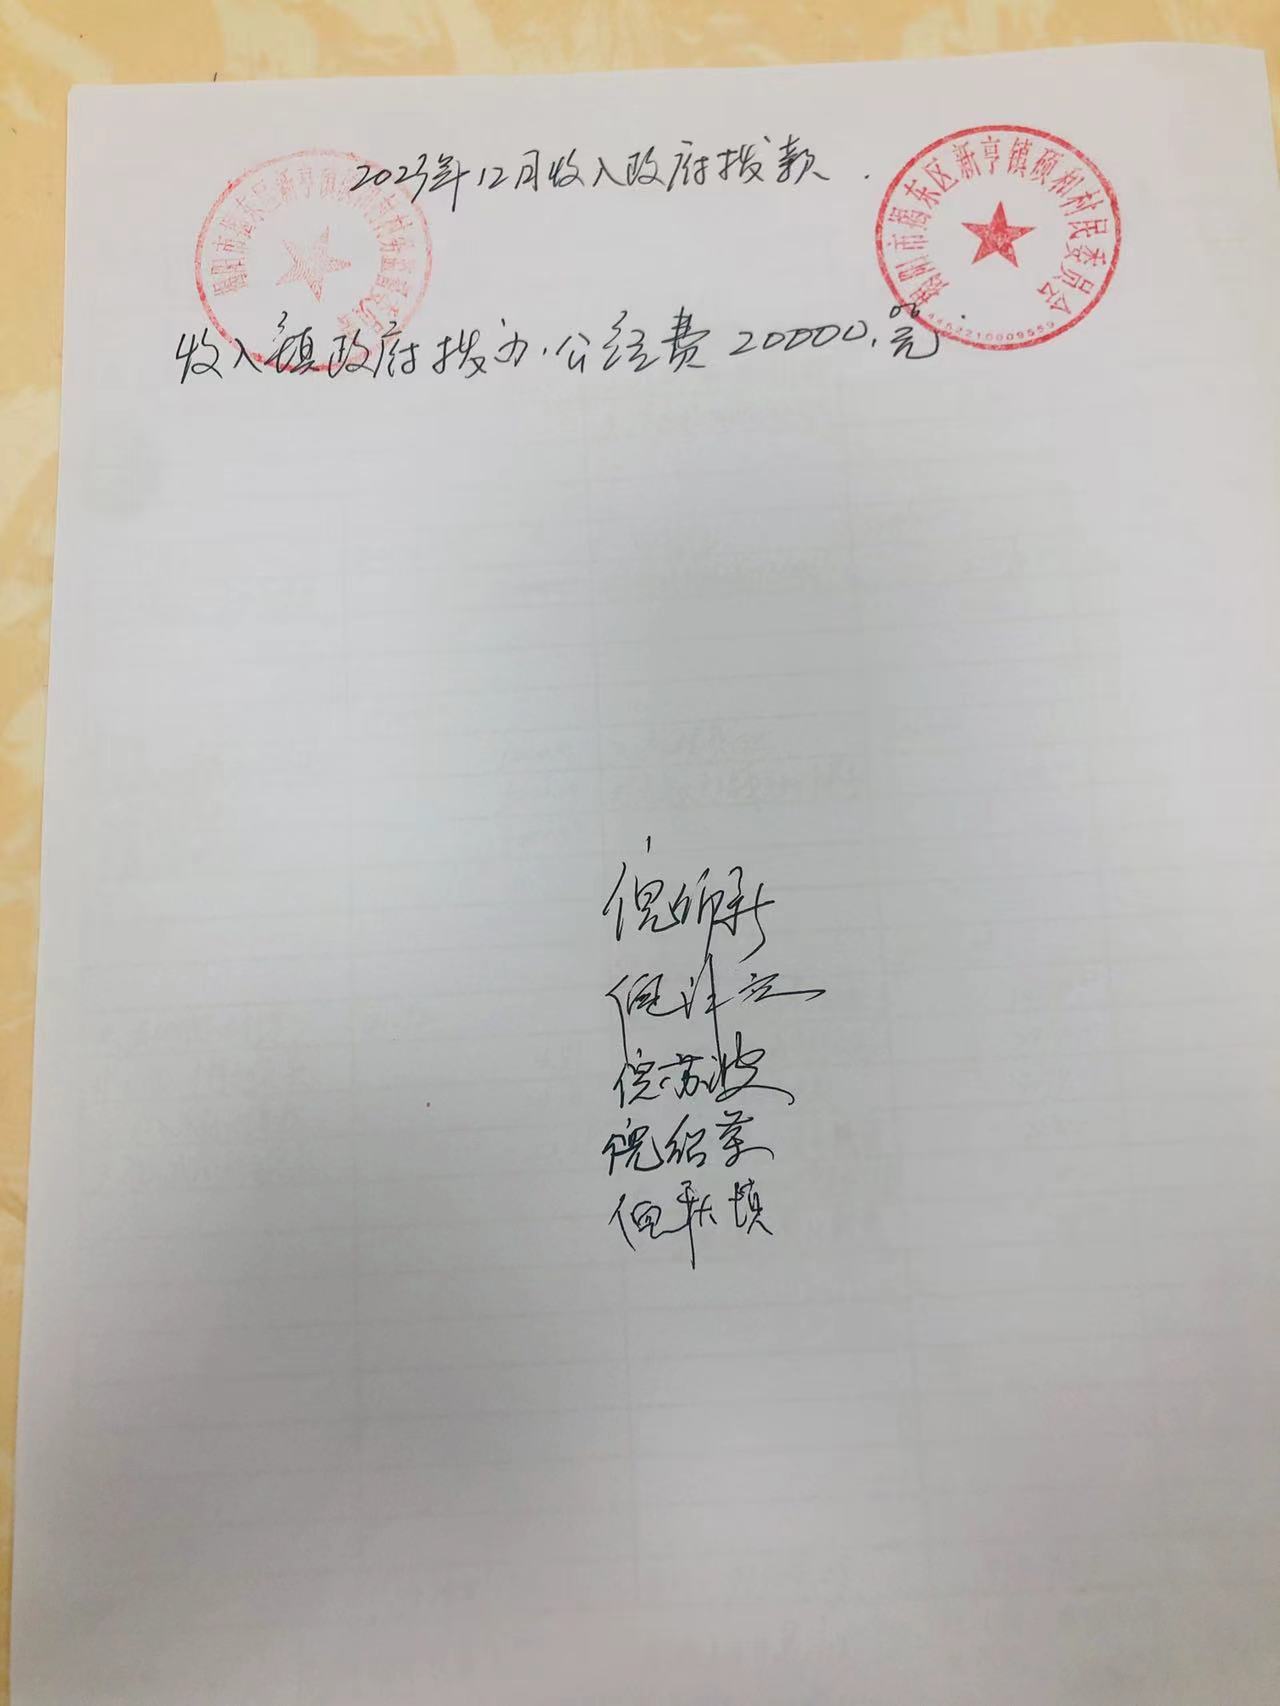 2023年12月收入政府拨款.
揭阳市揭东区新亨镇硕和村村务监督委员会
揭阳市揭东区新亨镇硕和村民委员会
4452210009559
收入镇政府拨办公经费20000.00元.
倪
倪
倪苏波
倪绍
倪